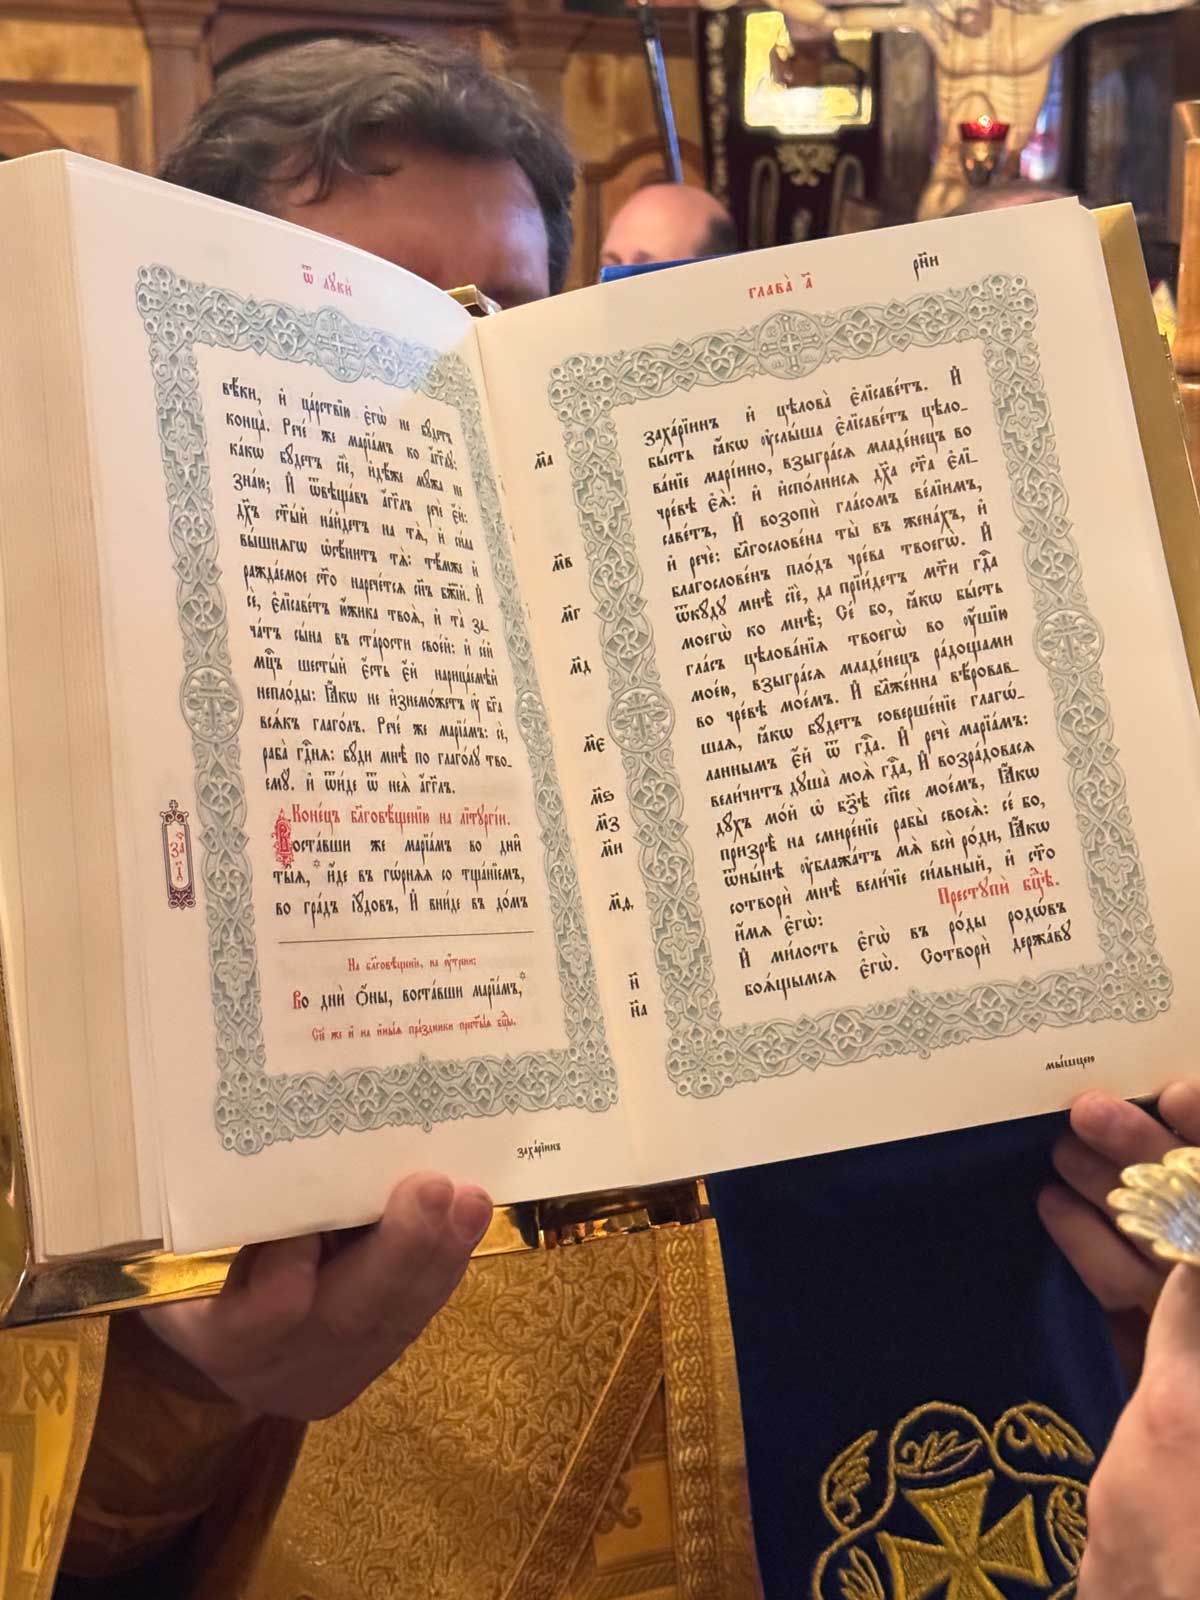 Ѿ лꙋкѝ
вѣ́ки, и҆ ца́рствїю є҆гѡ̀ не бꙋ́детъ
конца̀. Рече́ же марїа́мъ ко а҆́гг҃лꙋ:
ка́кѡ бꙋ́детъ сїѐ, и҆дѣ́же мꙋ́жа не
зна́ю; И҆ ѿвѣща́въ а҆́гг҃лъ речѐ є҆́й:
дх҃ъ ст҃ы́й на́йдетъ на тѧ̀, и҆ си́ла
вы́шнѧгѡ ѡ҆сѣни́тъ тѧ̀: тѣ́мже и҆
ражда́емое ст҃о нарече́тсѧ сн҃ъ бж҃їй. И҆
сѐ, є҆лїсаве́тъ ю҆́жика твоѧ̀, и҆ та̀ за_
ча́тъ сы́на въ ста́рости свое́й: и҆ се́й
мц҃ъ шесты́й є҆́сть є҆́й нарица́емѣй
непло́ды: Ꙗ҆́кѡ не и҆знемо́жетъ ᲂу҆ бг҃а
всѧ́къ глаго́лъ. Рече́ же марїа́мъ: сѐ,
раба̀ гдⷭ҇нѧ: бꙋ́ди мнѣ̀ по глаго́лꙋ тво_
емꙋ̀. и҆ ѿи́де ѿ неѧ̀ а҆́гг҃лъ.
Коне́цъ бл҃говѣ́щенїю на лїтꙋргі́и.
Воста́вши же марїа́мъ во дни̑
ты̑ѧ, * и҆́де въ гѡ́рнѧѧ со тща́нїемъ,
во гра́дъ і҆ꙋ́довъ, И҆ вни́де въ до́мъ
За҃
і҃
На бл҃говѣ́щенїи, на ᲂу҆́трени:
Во дни̑ ѻ҆́ны, воста́вши марїа́мъ,*
Сїѐ же и҆ на и҆ны̑ѧ пра́здники прест҃ы́ѧ бцⷣы.
заха́рїинъ
глава̀ а҃
рн҃и
м҃а
м҃в
м҃г
м҃д
м҃є
м҃ѕ
м҃з
м҃и
м҃ѳ
н҃
н҃а
заха́рїинъ и҆ цѣлова̀ є҆лїсаве́тъ. И҆
бы́сть ꙗ҆́кѡ ᲂу҆слы́ша є҆лїсаве́тъ цѣло_
ва́нїе марі́ино, взыгра́сѧ младе́нецъ во
чре́вѣ є҆ѧ̀: и҆ и҆спо́лнисѧ дх҃а ст҃а є҆лї_
саве́тъ, И҆ возопѝ гла́сомъ ве́лїимъ,
и҆ речѐ: бл҃гослове́на ты̀ въ жена́хъ, и҆
благослове́нъ пло́дъ чре́ва твоегѡ̀. И҆
ѿкꙋ́дꙋ мнѣ̀ сїѐ, да прїи́детъ мт҃и гдⷭ҇а
моегѡ̀ ко мнѣ̀; Се́ бо, ꙗ҆́кѡ бы́сть
гла́съ цѣлова́нїѧ твоегѡ̀ во ᲂу҆́шїю
мое́ю, взыгра́сѧ младе́нецъ ра́дощами
во чре́вѣ мое́мъ. И҆ бл҃же́нна вѣ́ровав_
шаѧ, ꙗ҆́кѡ бꙋ́детъ соверше́нїе глаго́_
ланнымъ є҆́й ѿ гдⷭ҇а. И҆ речѐ марїа́мъ:
вели́читъ дꙋша̀ моѧ̀ гдⷭ҇а, И҆ возра́довасѧ
дꙋ́хъ мо́й ѡ҆ бз҃ѣ сп҃се мое́мъ, Ꙗ҆́кѡ
призрѣ̀ на смире́нїе рабы̀ своеѧ̀: се́ бо,
ѿны́нѣ ᲂу҆блажа́тъ мѧ̀ всѝ ро́ди, Ꙗ҆́кѡ
сотворѝ мнѣ̀ вели́чїе си́льный, и҆ ст҃о
и҆́мѧ є҆гѡ̀: Престꙋпѝ бцⷣѣ.
И҆ ми́лость є҆гѡ̀ въ ро́ды родѡ́въ
боѧ́щымсѧ є҆гѡ̀. Сотворѝ держа́вꙋ
мы́шцею